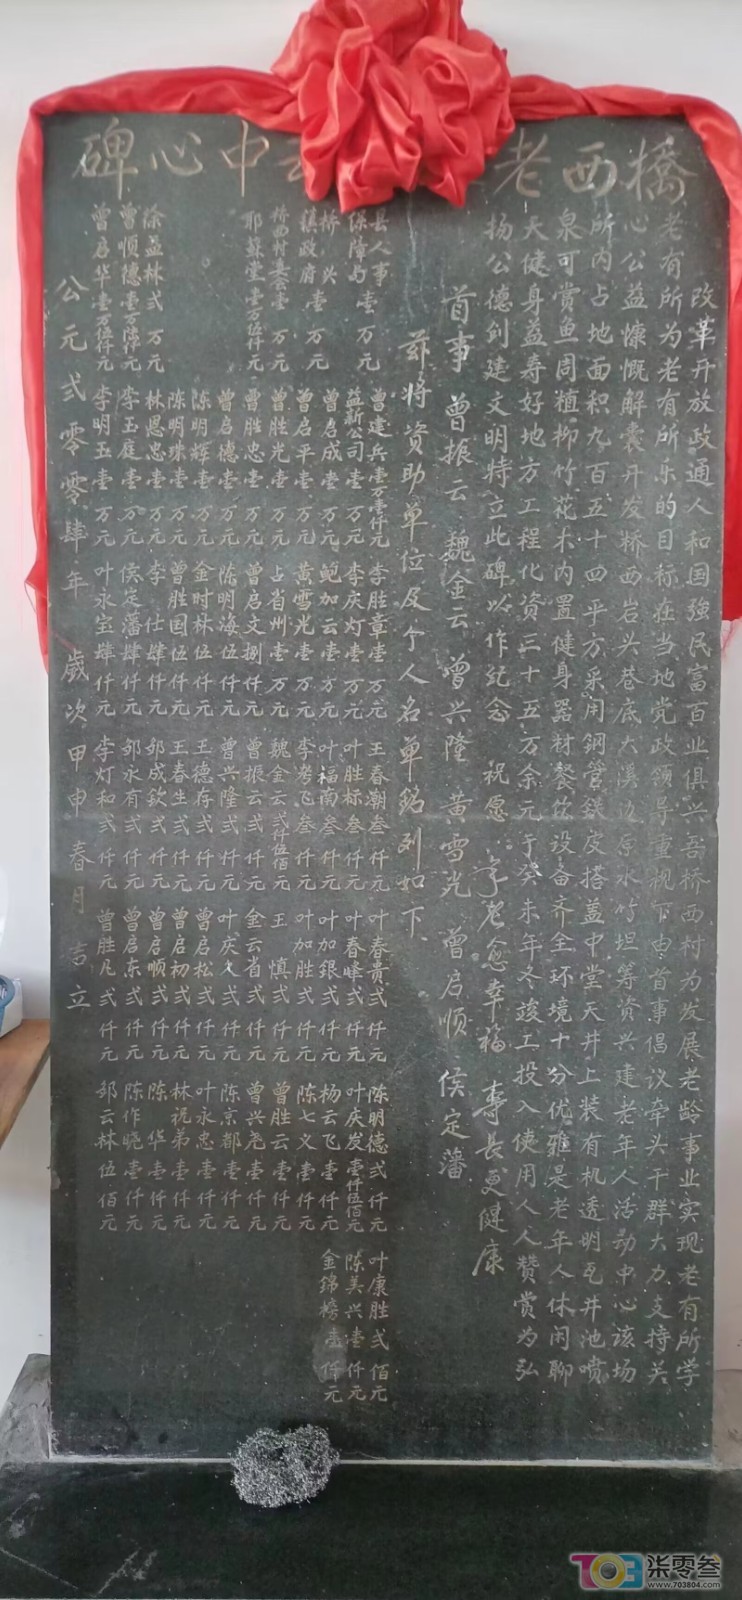 橋西老中心碑
改革开放政通人和国強民富百业俱兴吾桥西村为发展老龄事业实现老有所学
老有所为老有所乐的目标在当地党政领导重视下由首事倡议牵头干群大力支持关
心公益慷慨解囊开发桥西岩头巷底大溪边原水竹坦筹资兴建老年人活动中心该场
所内占地面积九百五十四平方采用鋼管鉄皮搭盖中堂天井上装有机透明瓦井池喷
泉可赏鱼周植柳竹花木内置健身器材餐饮设备齐全环境十分优雅是老年人休闲聊
天健身益寿好地方工程化资三十五万余元于癸未年冬竣工投入使用人人赞赏为弘
扬公德创建文明特立此碑以作纪念 祝愿：享老愈幸福 寿長更健康
首事 曾振云 魏金云 曾兴隆 黄雪光 曾启顺 侯定藩
茲将资助单位及个人名单銘列如下
县人事
保障局壹万元 曾建兵壹万壹仟元 李胜章壹万元 王春潮叁仟元 叶春贵弍仟元 陈明德弍仟元 叶康胜弍佰元
桥兴 益新公司壹万元 李庆灯壹万元 叶胜标叁仟元 叶春峰弍仟元 叶庆发壹仟伍佰元 陈美兴壹仟元
镇政府壹万元 曾启成壹万元 鲍加云壹万元 叶福南叁仟元 叶加銀弍仟元 杨云飞壹仟元 金錦榜壹仟元
桥西村委会壹万元 曾启平壹万元 黄雪光壹万元 李孝飞叁仟元 叶加胜弍仟元 陈七义壹仟元
耶蘇堂壹万伍仟元 曾胜光壹万元 占省州壹万元 魏金云弍仟伍佰元 王慎弍仟元 曾胜云壹仟元
曾胜忠壹万元 曾启文捌仟元 曾振云弍仟元 金云省弍仟元 曾兴尧壹仟元
曾启德壹万元 陈明海伍仟元 曾兴隆弍仟元 叶庆久弍仟元 陈京都壹仟元
陈明辉壹万元 金时林伍仟元 王德存弍仟元 曾启松弍仟元 叶永忠壹仟元
陈明珠壹万元 曾胜国伍仟元 王春生弍仟元 曾启初弍仟元 林祝弟壹仟元
徐益林弍万元 林恩忠壹万元 李仕肆仟元 邬成欽弍仟元 曾启顺弍仟元 陈华壹仟元
曾顺德壹万陆仟元 李玉庭壹万元 侯定藩肆仟元 邬永有弍仟元 曾启东弍仟元 陈作曉壹仟元
曾启华壹万伍仟元 李明玉壹万元 叶永宝肆仟元 李灯和弍仟元 曾胜凡弍仟元 邬云林伍佰元
公元弍零零肆年 歲次甲申春月吉立
柒零叁
www.703804.com